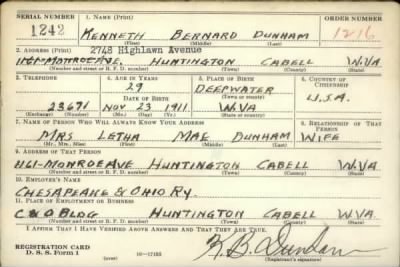 SERIAL NUMBER 1. NAME (Print) ORDER NUMBER
1242 KENNETH BERNARD DUNHAM 1216
(First) (Middle) (Last)
2748 Highlawn Avenue
2. ADDRESS (Print)
1161-MONROE AVE HUNTINGTON CABELL W.VA
(Number and street or R. F. D. number) (Town) (County) (State)
3. TELEPHONE 4. AGE IN YEARS 5. PLACE OF BIRTH 6. COUNTRY OF CITIZENSHIP
29 DEEPWATER
DATE OF BIRTH (Town or county)
23671 NOV 23 1911 W.VA U.S.A.
(Mo.) (Day) (Yr.) (State or country)
7. NAME OF PERSON WHO WILL ALWAYS KNOW YOUR ADDRESS 8. RELATIONSHIP OF THAT PERSON
MRS LETHA MAE DUNHAM WIFE
(Mr., Mrs., Miss) (First) (Middle) (Last)
9. ADDRESS OF THAT PERSON
1161-MONROE AVE HUNTINGTON CABELL W.VA
(Number and street or R. F. D. number) (Town) (County) (State)
10. EMPLOYER'S NAME
CHESAPEAKE & OHIO RY.
11. PLACE OF EMPLOYMENT OR BUSINESS
C & O BLDG HUNTINGTON CABELL W.VA.
(Number and street or R. F. D. number) (Town) (County) (State)
I AFFIRM THAT I HAVE VERIFIED ABOVE ANSWERS AND THAT THEY ARE TRUE.
REGISTRATION CARD
D. S. S. Form 1 (over) 16—17105 K. B. Dunham
(Registrant's signature)